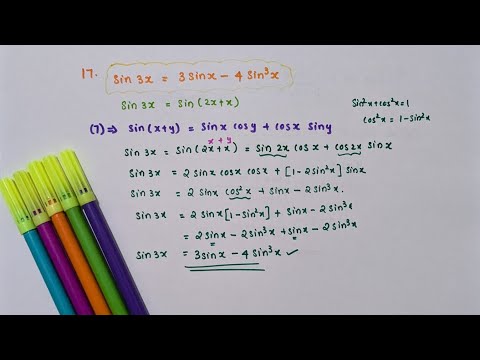 17. Sin 3x = 3 Sinx - 4 Sin³x
Sin 3x = Sin (2x+x)
Sin²x + cos²x = 1
cos²x = 1 - Sin²x
(7) ⇒ Sin (x+y) = Sinx cosy + cosx Siny
x + y
Sin 3x = Sin (2x+x) = Sin 2x cosx + cos2x Sinx
Sin 3x = 2 Sinx cosx cosx + [1 - 2Sin²x] Sinx
Sin 3x = 2 Sinx cos²x + Sinx - 2Sin³x.
Sin 3x = 2 Sinx [1 - Sin²x] + Sinx - 2Sin³x
= 2Sinx - 2Sin³x + Sinx - 2Sin³x
Sin 3x = 3Sinx - 4 Sin³x ✓